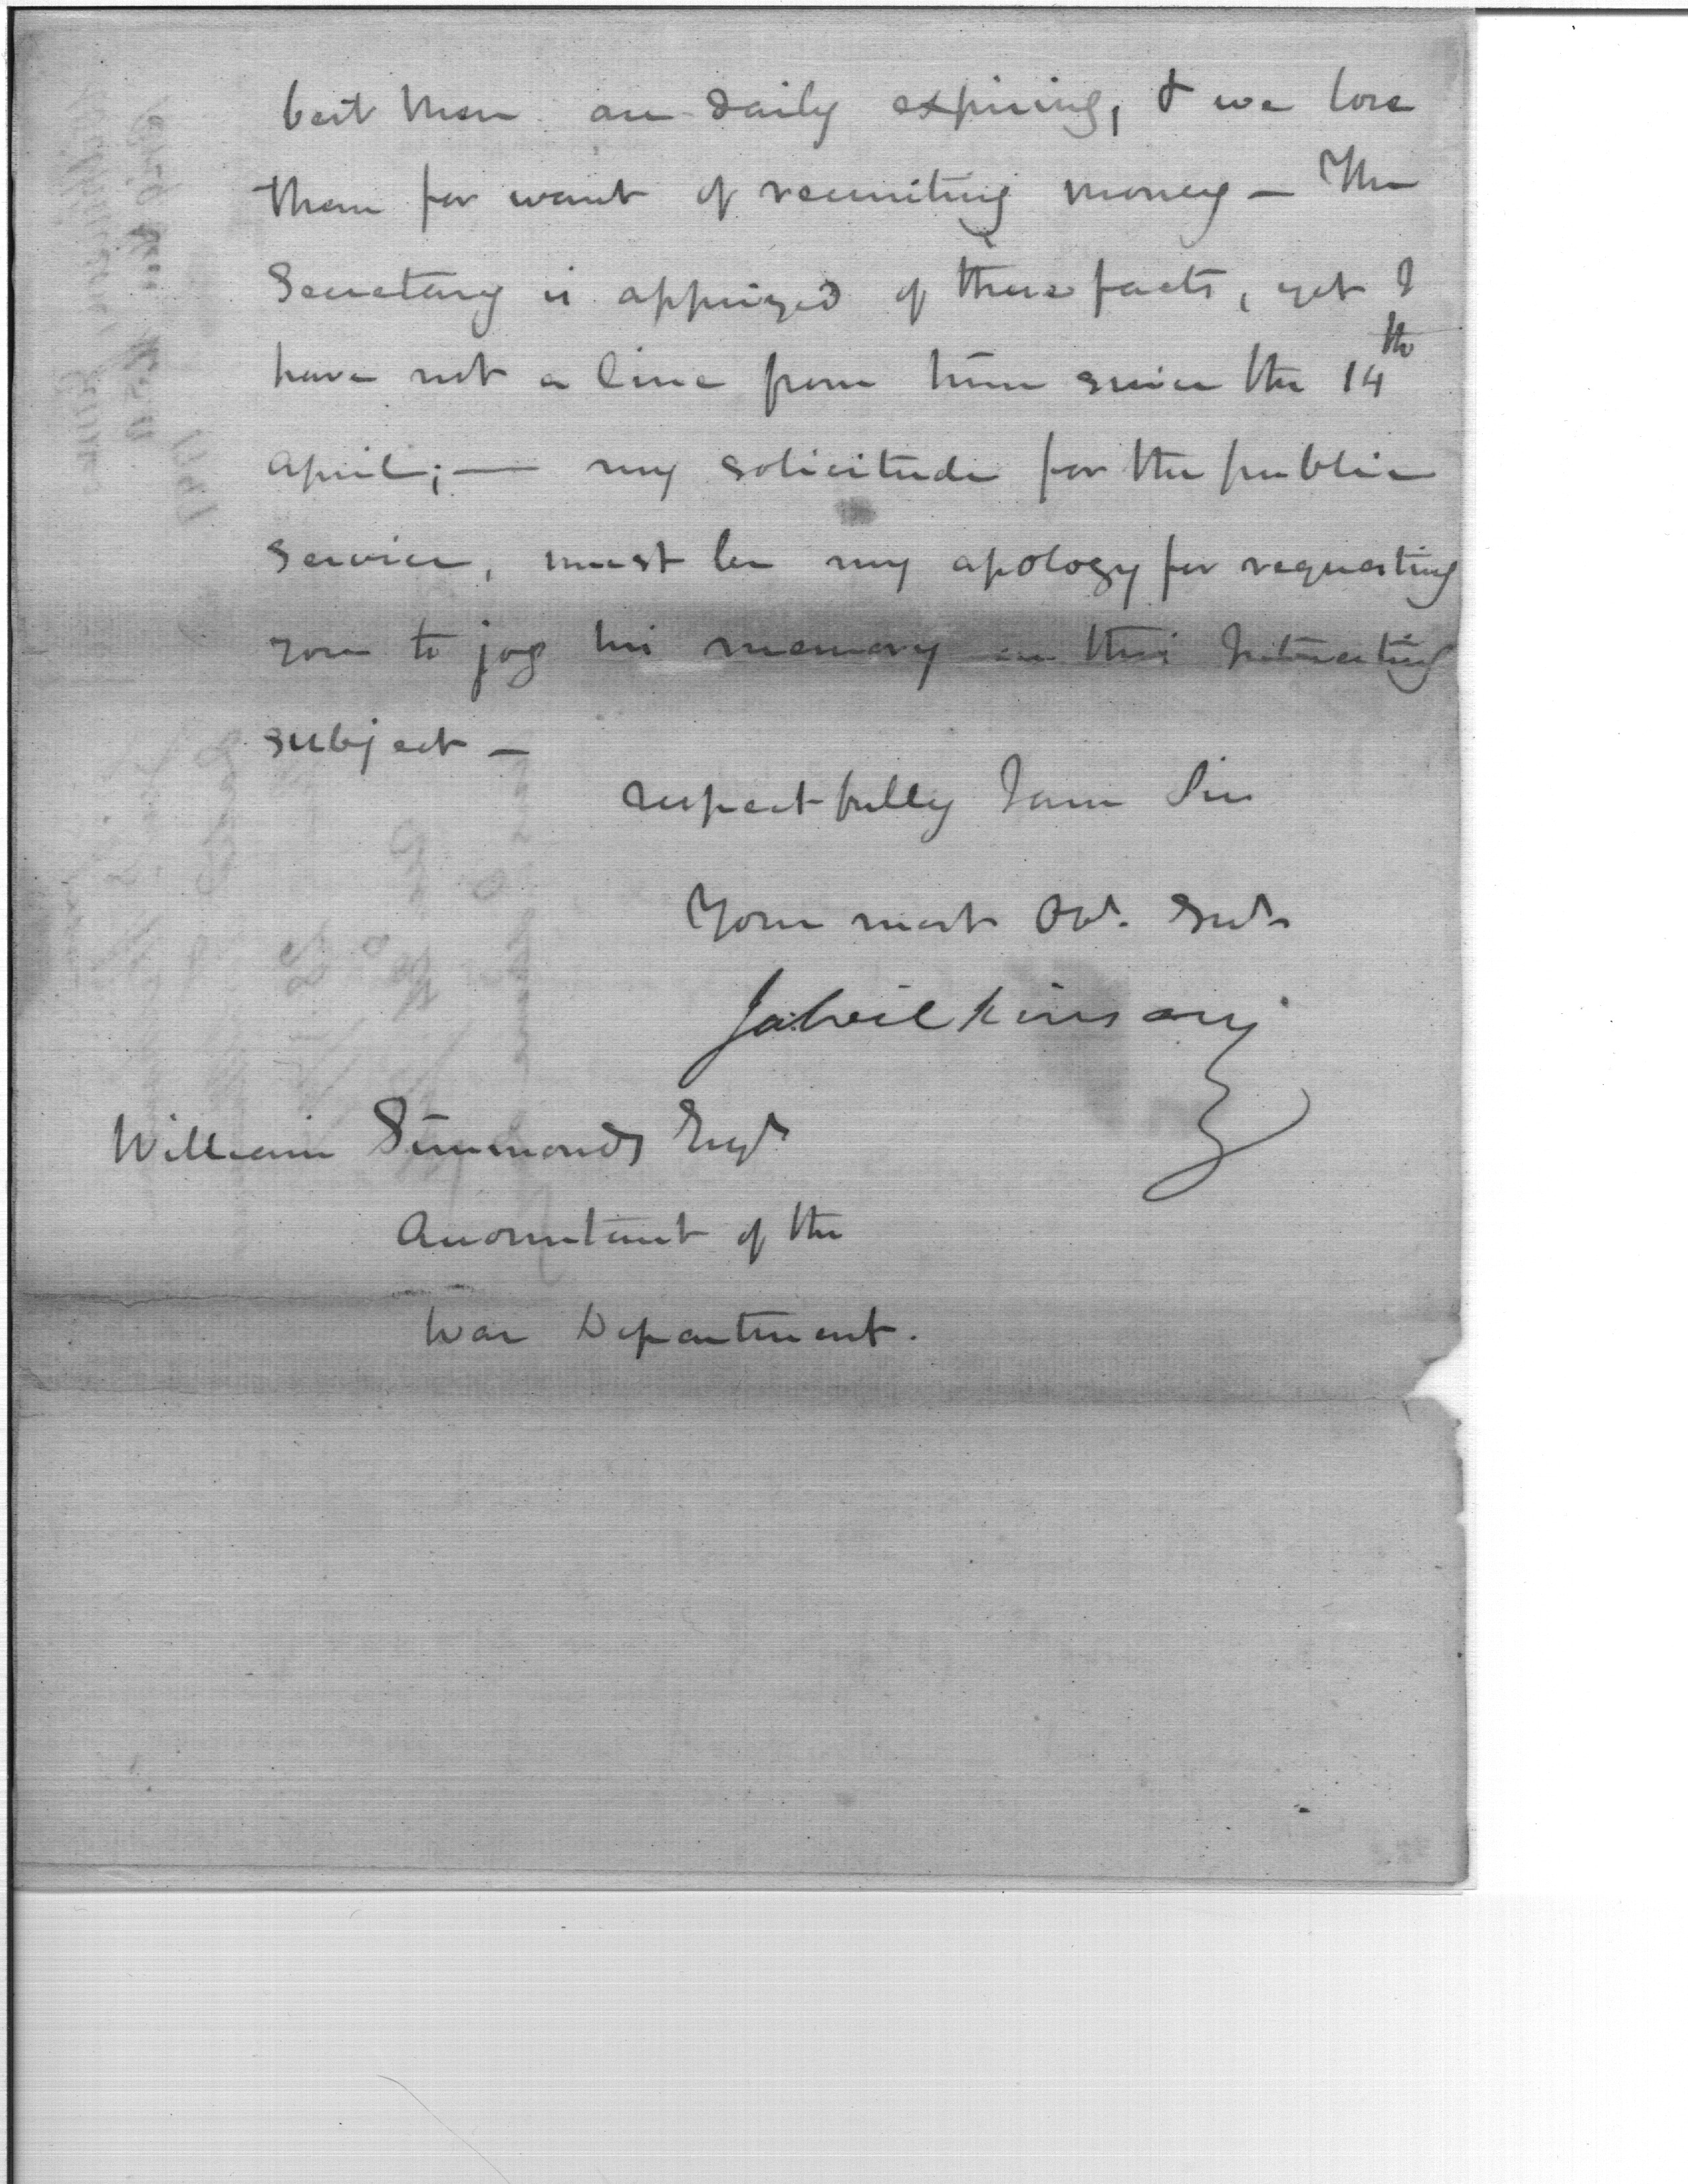 best men are daily expiring, & we lose
them for want of recruiting money — The
Secretary is apprized of these facts, yet I
have not a line from him since the 14th
April; — my solicitude for the public
service, must be my apology for requesting
you to jog his memory on this Interesting
subject —
respectfully I am Sir
Your most Obt. Svt
Ja Wilkinson
William Simmonds Esqr
Accountant of the
War Department.